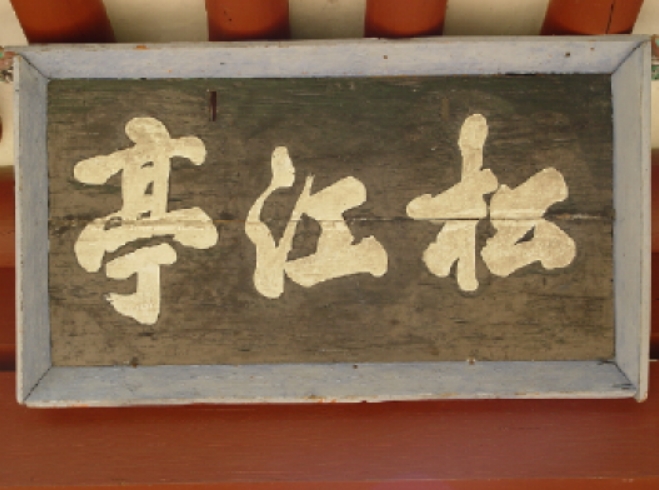 松江亭